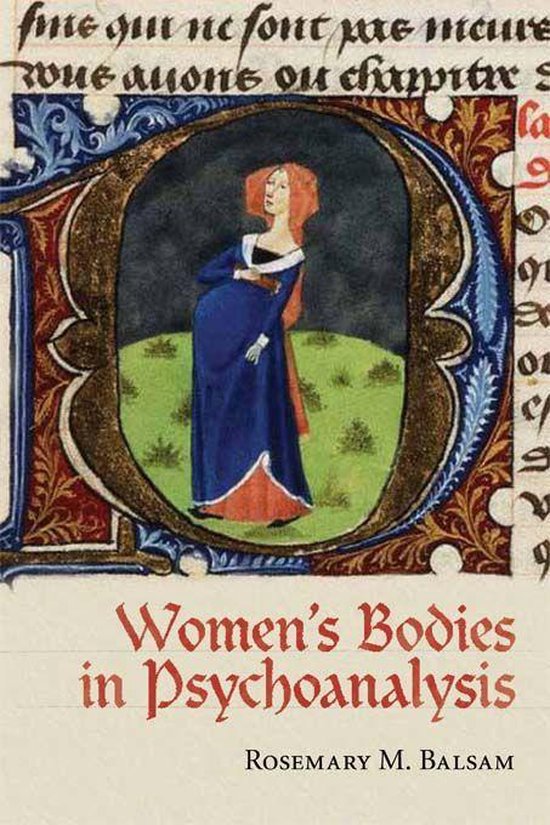 sins qui ne sont pas meurs
auons ou chappitre
la
Women's Bodies
in Psychoanalysis
Rosemary M. Balsam